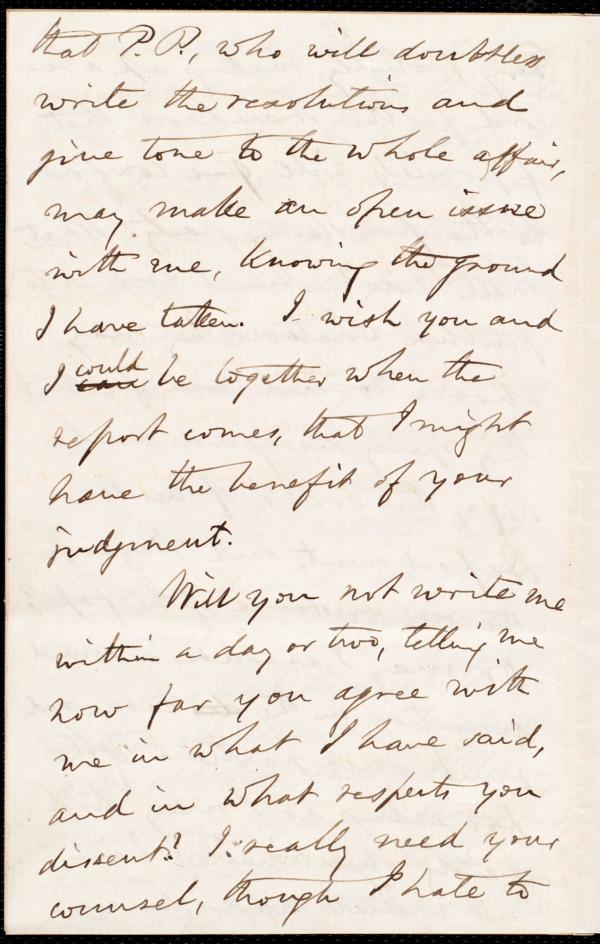 that P. P., who will doubtless
write the resolutions and
give tone to the whole affair,
may make an open issue
with me, knowing the ground
I have taken. I wish you and
I could be together when the
report comes, that I might
have the benefit of your
judgment.
Will you not write me
within a day or two, telling me
how far you agree with
me in what I have said,
and in what respects you
dissent? I really need your
counsel, though I hate to